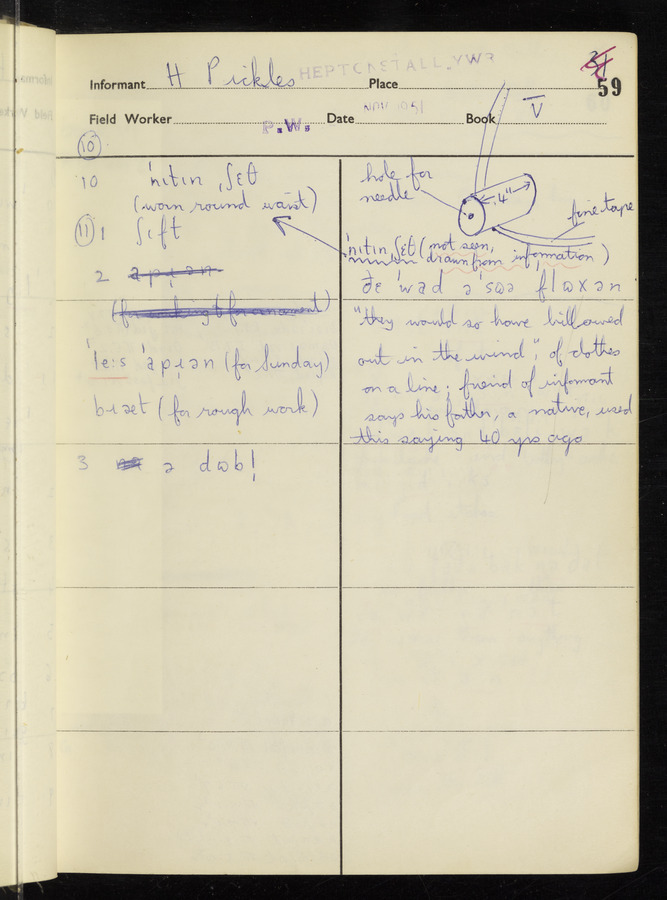 Informant H Pickles Place HEPTONSTALL. YWR 59
Field Worker P.W. Date NOV 1951 Book V
10
10 ˈnɪtɪn ˌʃɛθ
(worn round waist)
11 1 ʃɪft
2
ˈleːs ˈapɹən (for Sunday)
bɹat (for rough work)
3 ə dɷb!
hole for
needle
4"
fine tape
ˈnɪtɪn ˌʃɛθ (not seen,
drawn from information)
ðe ˈwəd əˈsɷə flɷxən
"they would so have billowed
out in the wind", of clothes
on a line; friend of informant
says his father, a native, used
this saying 40 yrs ago